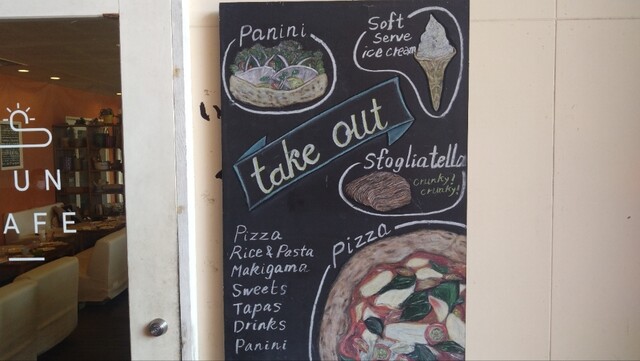 Panini
Soft
Serve
ice cream
take out
Sfogliatella
crunky!
crunky!
Pizza
Pizza
Rice & Pasta
Makigama
Sweets
Tapas
Drinks
Panini
UN
AFE